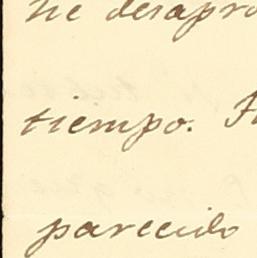 he desapro
tiempo.
parecido